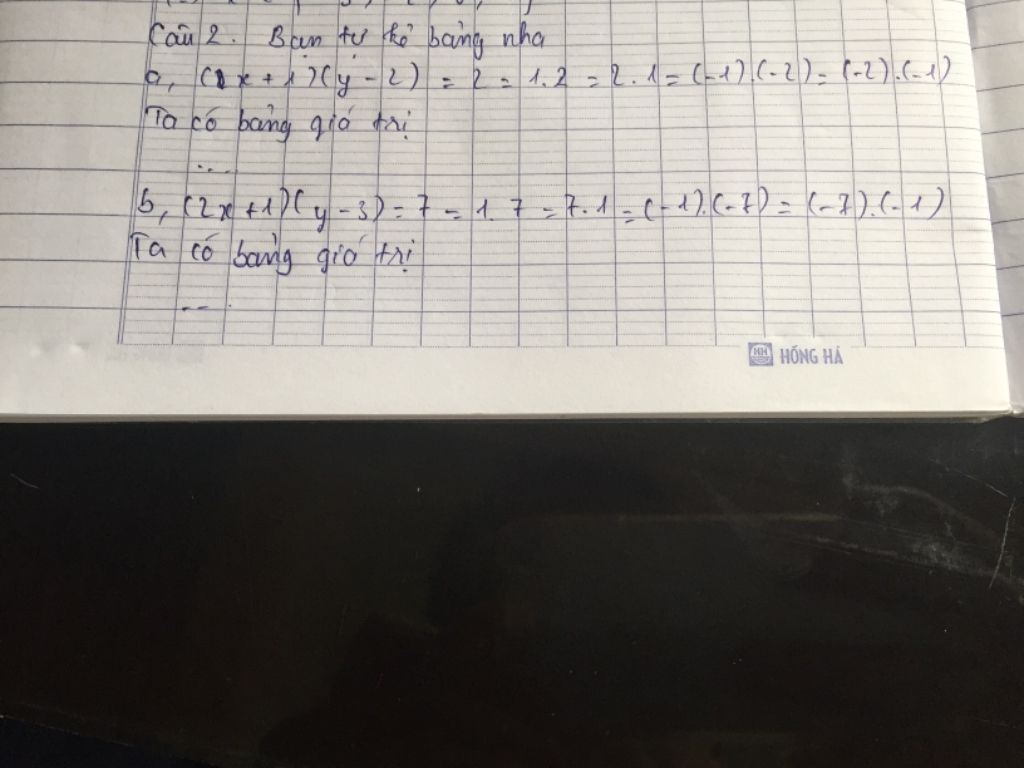 Câu 2. Bạn tự kẻ bảng nha
a, (x+1)(y-2) = 2 = 1.2 = 2.1 = (-1).(-2) = (-2).(-1)
Ta có bảng giá trị
...
b, (2x+1)(y-3) = 7 = 1.7 = 7.1 = (-1).(-7) = (-7).(-1)
Ta có bảng giá trị
...
HH HỒNG HÀ